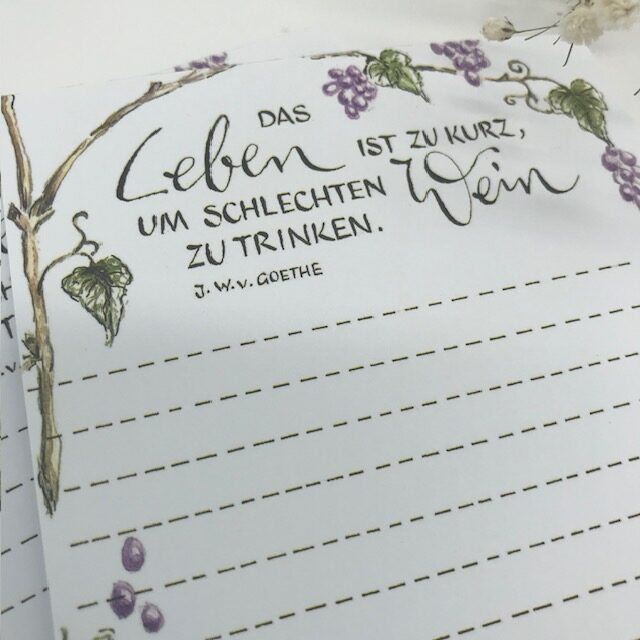 DAS
Leben IST ZU KURZ,
UM SCHLECHTEN Wein
ZU TRINKEN.
J. W. v. GOETHE